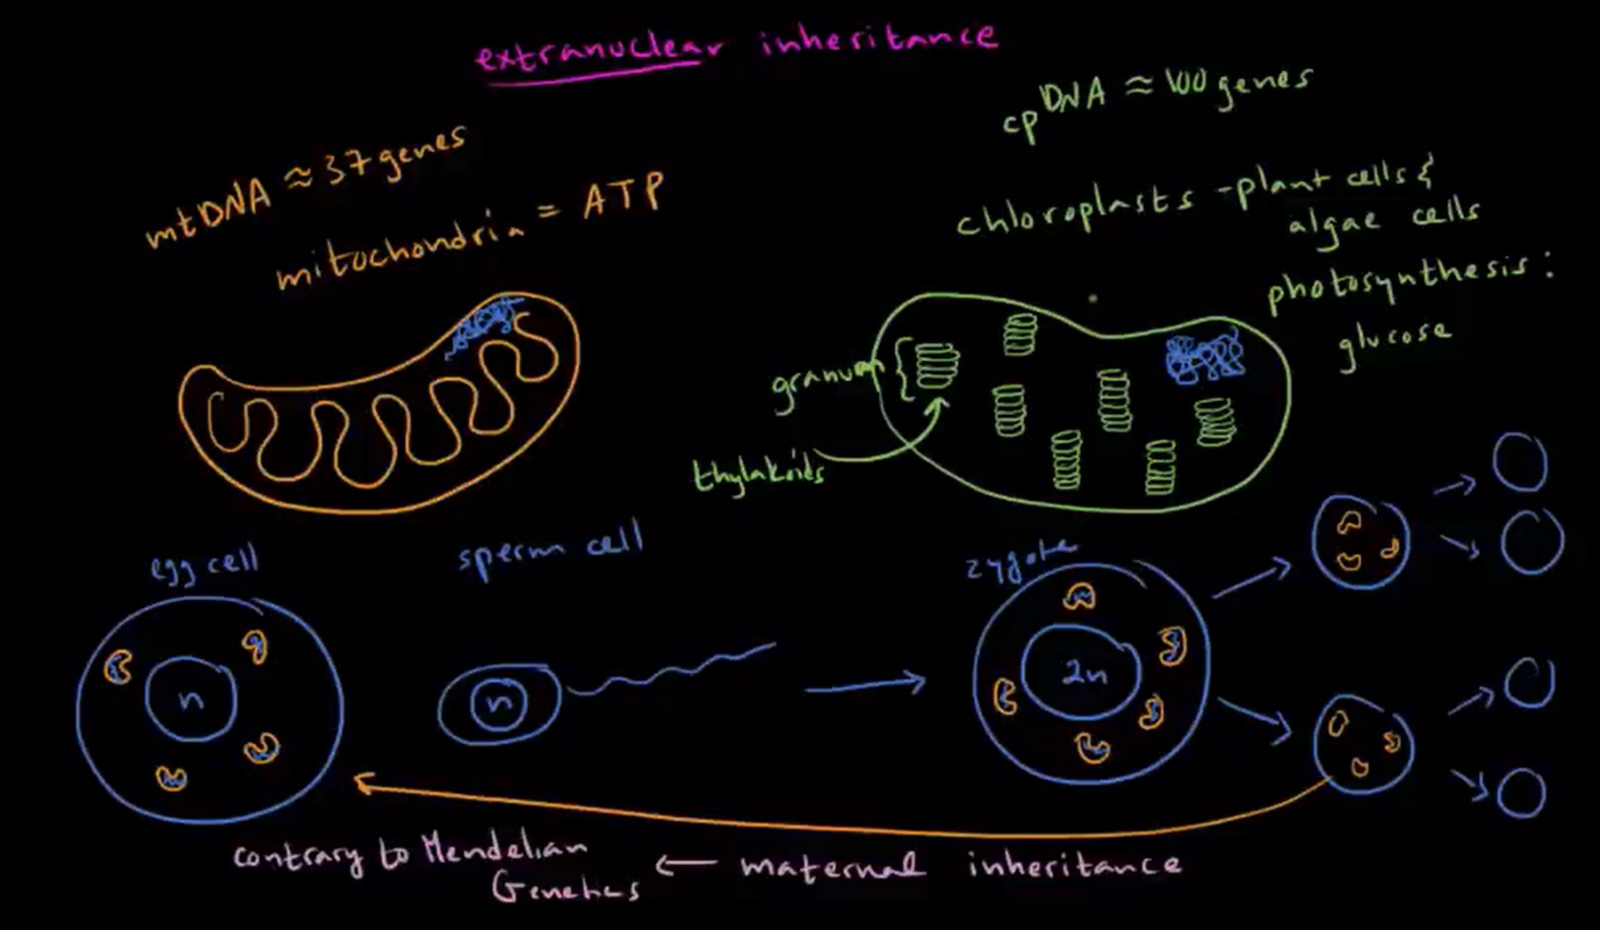 extranuclear inheritance
mtDNA ≈ 37 genes
mitochondria = ATP
cpDNA ≈ 100 genes
chloroplasts - plant cells &
algae cells
photosynthesis:
glucose
granum {
thylakoids
egg cell
sperm cell
zygote
n
n
2n
contrary to Mendelian
Genetics
← maternal inheritance